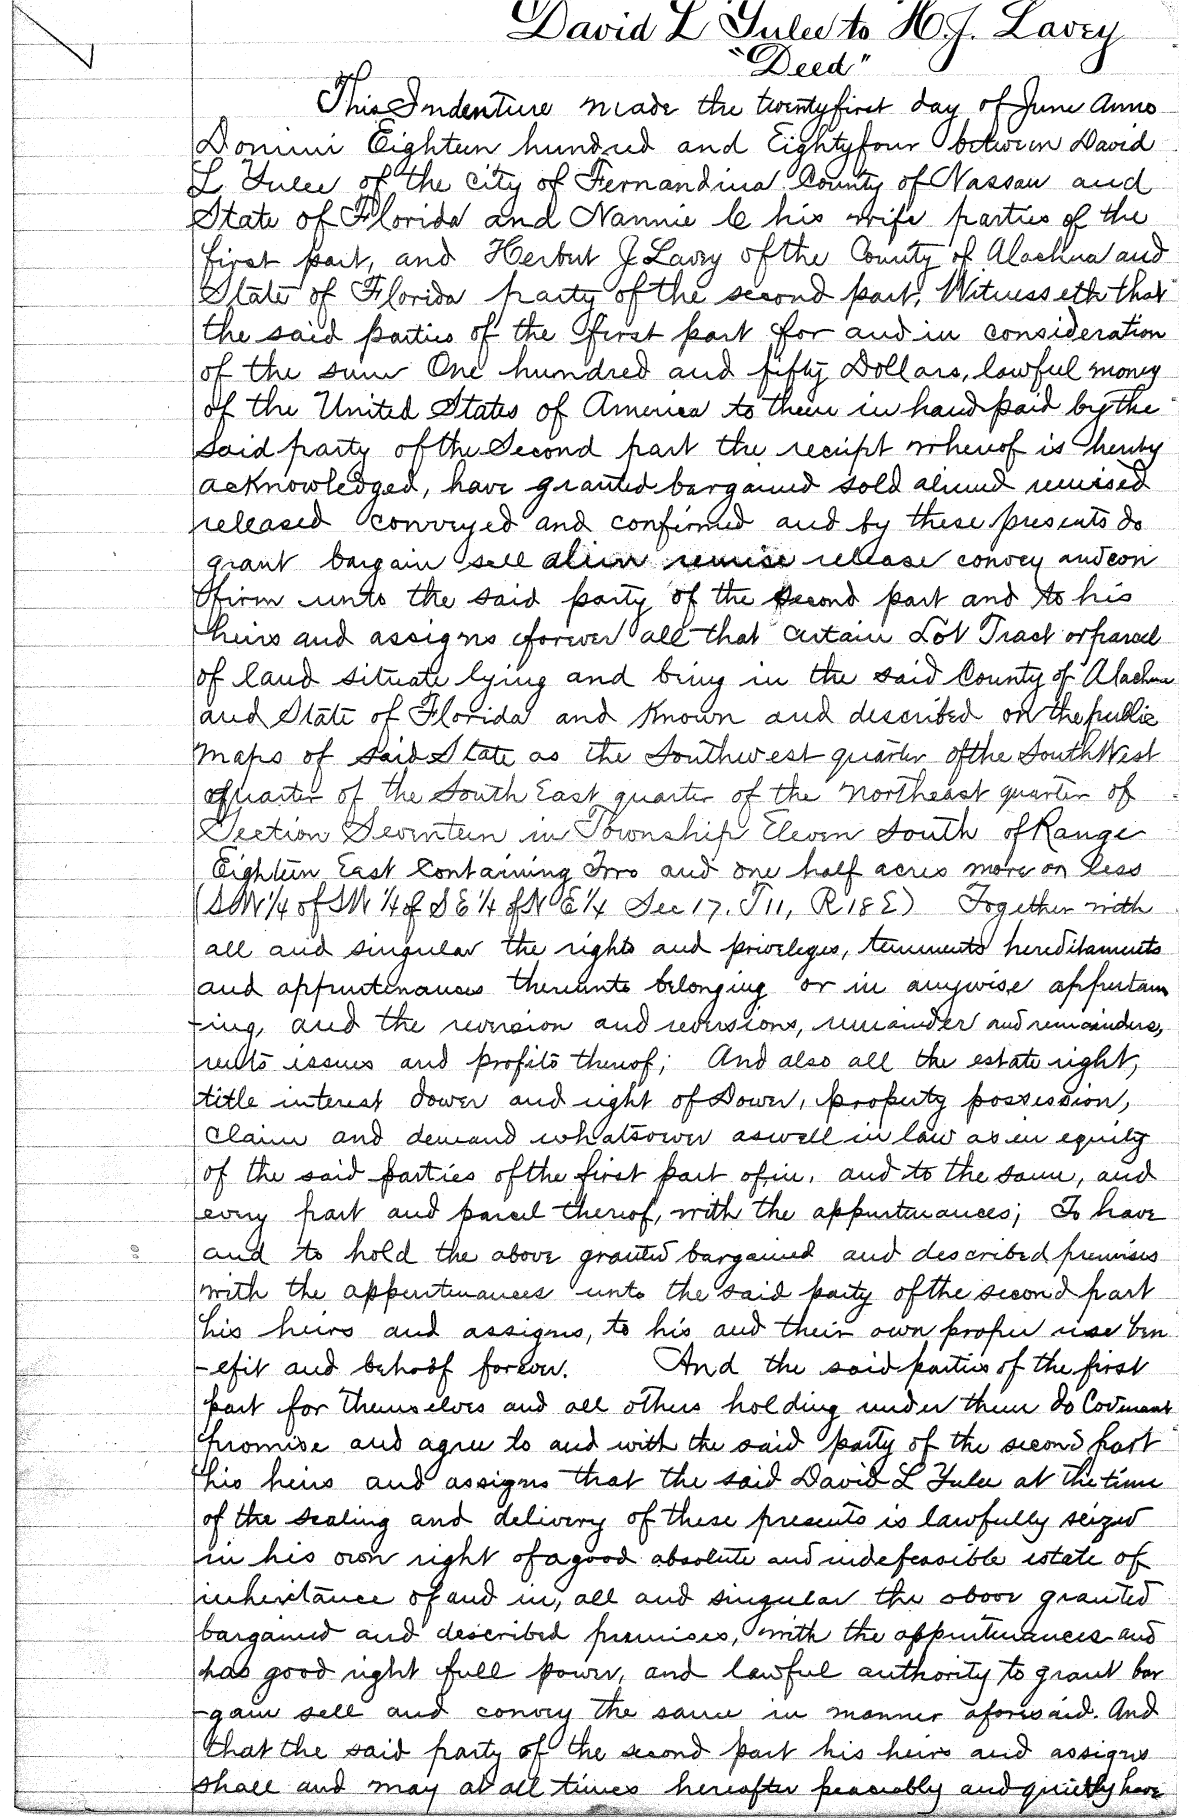 David L Yulee to H. J. Lavey
"Deed"
This Indenture made the twentyfirst day of June Anno
Domini Eighteen hundred and Eightyfour between David
L Yulee of the city of Fernandina County of Nassau and
State of Florida and Nannie C his wife parties of the
first part, and Herbert J Lavey of the County of Alachua and
State of Florida party of the second part, Witnesseth that
the said parties of the first part for and in consideration
of the sum One hundred and fifty Dollars, lawful money
of the United States of America to them in hand paid by the
said party of the Second part the receipt whereof is hereby
acknowledged, have granted bargained sold aliened remised
released conveyed and confirmed and by these presents do
grant bargain sell alien remise release convey and con
firm unto the said party of the second part and to his
heirs and assigns forever all that certain Lot Tract or parcel
of land situate lying and being in the said County of Alachua
and State of Florida and Known and described on the public
maps of said State as the Southwest quarter of the South West
quarter of the South East quarter of the northeast quarter of
Section Seventeen in Township Eleven South of Range
Eighteen East Containing Two and one half acres more or less
(SW 1/4 of SW 1/4 of SE 1/4 of NE 1/4 Sec 17. T 11, R 18 E) Together with
all and singular the rights and privileges, tenements hereditaments
and appurtenances thereunto belonging or in anywise appertain
-ing, and the reversion and reversions, remainder and remainders,
rents issues and profits thereof; And also all the estate right,
title interest dower and right of Dower, property possession,
claim and demand whatsoever as well in law as in equity
of the said parties of the first part of in, and to the same, and
every part and parcel thereof, with the appurtenances; To have
and to hold the above granted bargained and described premises
with the appurtenances unto the said party of the second part
his heirs and assigns, to his and their own proper use ben
-efit and behoof forever. And the said parties of the first
part for themselves and all others holding under them do Covenant
promise and agree to and with the said party of the second part
his heirs and assigns that the said David L Yulee at the time
of the sealing and delivery of these presents is lawfully seized
in his own right of a good absolute and indefeasible estate of
inheritance of and in, all and singular the above granted
bargained and described premises, with the appurtenances and
has good right full power, and lawful authority to grant bar
-gain sell and convey the same in manner aforesaid. And
that the said party of the second part his heirs and assigns
shall and may at all times hereafter peaceably and quietly have